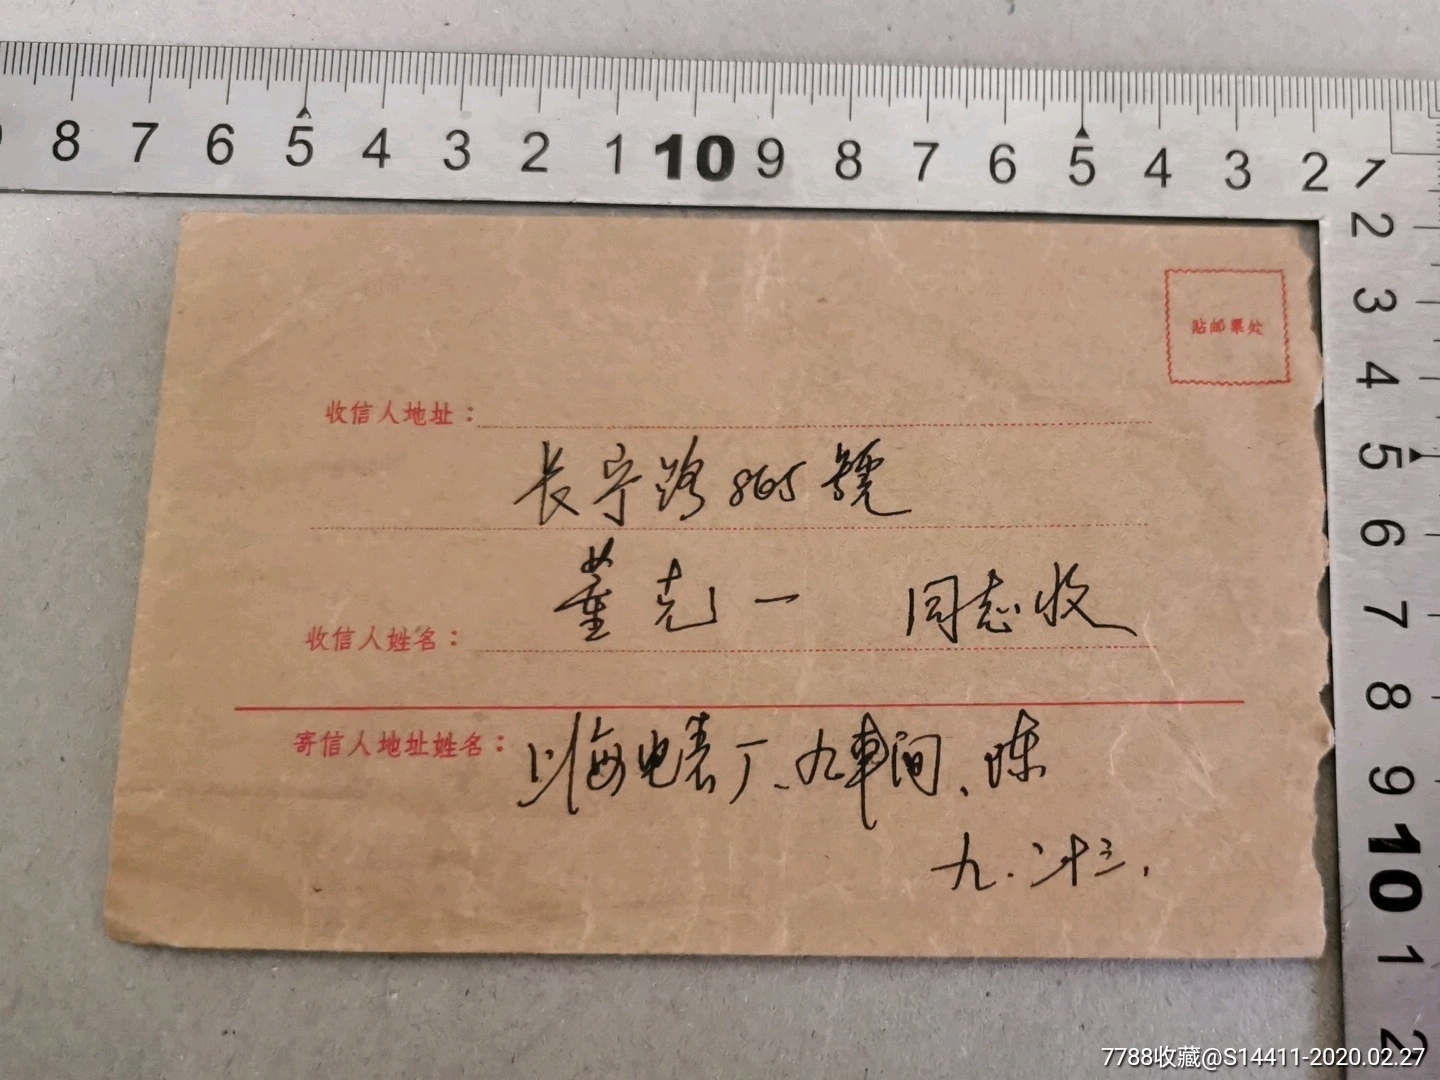 9 8 7 6 5 4 3 2 1 10 9 8 7 6 5 4 3 2 1
2
3
4
5
6
7
8
9
10
1
2
贴邮票处
收信人地址：
长宁路865號
收信人姓名： 董克一 同志收
寄信人地址姓名： 上海电表厂、九車间、陈
九.二十三.
7788收藏@S14411-2020.02.27